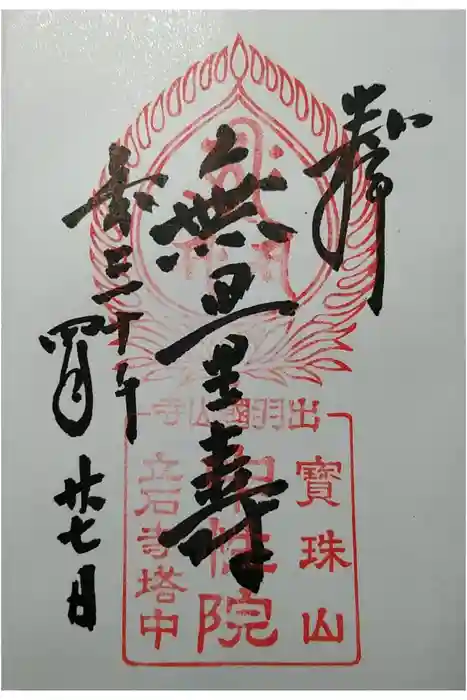 奉拝
無量壽
平成三十年
四月廿七日
出羽國山寺
寶珠山
中性院
立石寺塔中